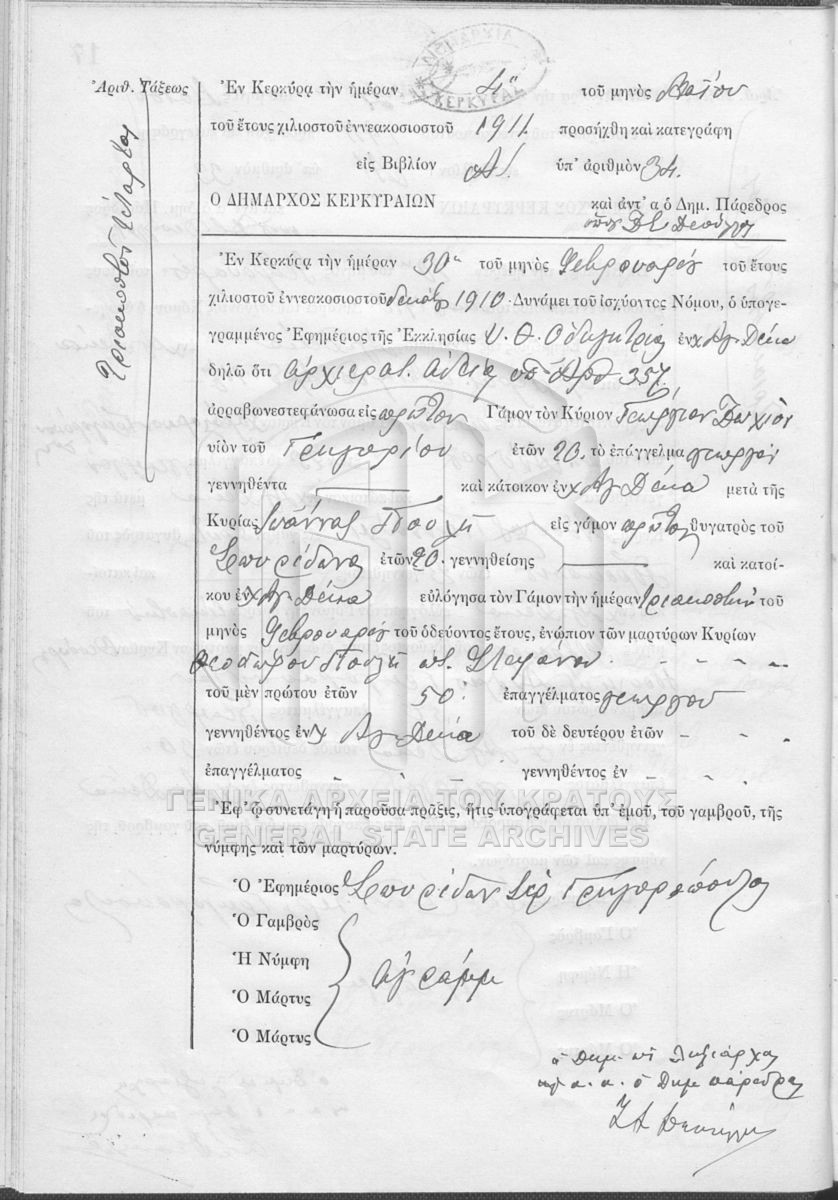 Ἀριθ. Τάξεως
Τριακοστὸν τέταρτον
ΚΕΡΚΥΡΑ
Ἐν Κερκύρᾳ τὴν ἡμέραν 4η τοῦ μηνὸς Μαΐου
τοῦ ἔτους χιλιοστοῦ ἐννεακοσιοστοῦ 1911. προσήχθη καὶ κατεγράφη
εἰς Βιβλίον Α΄. ὑπ' ἀριθμὸν 34.
Ο ΔΗΜΑΡΧΟΣ ΚΕΡΚΥΡΑΙΩΝ καὶ ἀντ' α ὁ Δημ. Πάρεδρος
Ἐν Κερκύρᾳ τὴν ἡμέραν 30η τοῦ μηνὸς Φεβρουαρίου τοῦ ἔτους
χιλιοστοῦ ἐννεακοσιοστοῦ δεκάτου 1910. Δυνάμει τοῦ ἰσχύοντος Νόμου, ὁ ὑπογε-
γραμμένος Ἐφημέριος τῆς Ἐκκλησίας Υ. Θ. Οδηγητρια ἐν χ Αγ Δέκα
δηλῶ ὅτι ἀρχιερατ. ἀδεία ὑπ' Αρθ 357
ἀρραβωνεστεφάνωσα εἰς πρῶτον Γάμον τὸν Κύριον Γεώργιον
υἱὸν τοῦ Γρηγορίου ἐτῶν 20. τὸ ἐπάγγελμα γεωργὸν
γεννηθέντα — καὶ κάτοικον ἐν χ Αγ Δέκα μετὰ τῆς
Κυρίας Ἰωάννας Πουλῆ εἰς γάμον πρῶτον θυγατρὸς τοῦ
Σπυρίδωνος ἐτῶν 20. γεννηθείσης — καὶ κατοί-
κου ἐν χ Αγ Δέκα εὐλόγησα τὸν Γάμον τὴν ἡμέραν τριακοστὴν τοῦ
μηνὸς Φεβρουαρίου τοῦ ὁδεύοντος ἔτους, ἐνώπιον τῶν μαρτύρων Κυρίων
Θεοδώρου Πουλῆ Στεφάνου
τοῦ μὲν πρώτου ἐτῶν 50. ἐπαγγέλματος γεωργοῦ
γεννηθέντος ἐν χ Αγ Δέκα τοῦ δὲ δευτέρου ἐτῶν
ἐπαγγέλματος γεννηθέντος ἐν
ΓΕΝΙΚΑ ΑΡΧΕΙΑ ΤΟΥ ΚΡΑΤΟΥΣ
Ἐφ' ᾧ συνετάγη ἡ παροῦσα πρᾶξις, ἥτις ὑπογράφεται ὑπ' ἐμοῦ, τοῦ γαμβροῦ, τῆς
GENERAL STATE ARCHIVES
νύμφης καὶ τῶν μαρτύρων.
Ὁ Ἐφημέριος Σπυρίδων Ιερ Γρηγορόπουλος
Ὁ Γαμβρὸς
Ἡ Νύμφη
ἀγράμμ
Ὁ Μάρτυς
Ὁ Μάρτυς
ὁ Δημ. Ληξίαρχος
α. α. ὁ Δημ πάρεδρος